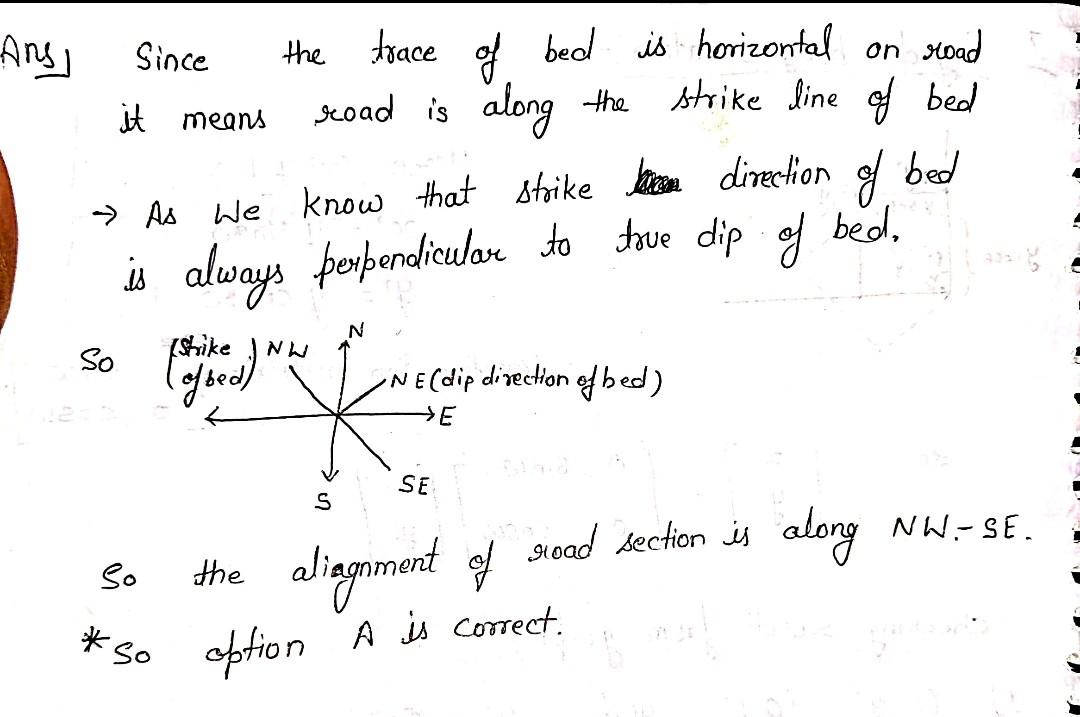 Ans) Since the trace of bed is horizontal on road
it means road is along the strike line of bed
→ As We know that strike direction of bed
is always perpendicular to true dip of bed.
So (strike of bed) NW N
NE (dip direction of bed)
E
S SE
So the aliagnment of road section is along NW-SE.
* So option A is correct.